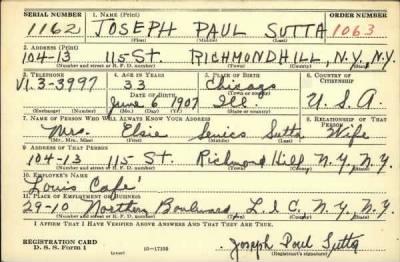 SERIAL NUMBER 1. NAME (Print) ORDER NUMBER
1162 JOSEPH PAUL SUTTA 1063
(First) (Middle) (Last)
2. ADDRESS (Print)
104-13 115 St. RICHMOND HILL, N.Y., N.Y.
(Number and street or R. F. D. number) (Town) (County) (State)
3. TELEPHONE 4. AGE IN YEARS 5. PLACE OF BIRTH 6. COUNTRY OF CITIZENSHIP
VI. 3-3997 33 Chicago
DATE OF BIRTH (Town or county)
June 6 1907 Ill. U.S.A.
(Exchange) (Number) (Mo.) (Day) (Yr.) (State or country)
7. NAME OF PERSON WHO WILL ALWAYS KNOW YOUR ADDRESS 8. RELATIONSHIP OF THAT PERSON
Mrs. Elsie Sutta Wife
(Mr., Mrs., Miss) (First) (Middle) (Last)
9. ADDRESS OF THAT PERSON
104-13 115 St. Richmond Hill N.Y., N.Y.
(Number and street or R. F. D. number) (Town) (County) (State)
10. EMPLOYER'S NAME
Louis Café
11. PLACE OF EMPLOYMENT OR BUSINESS
29-10 Northern Boulevard L.I.C. N.Y., N.Y.
(Number and street or R. F. D. number) (Town) (County) (State)
I AFFIRM THAT I HAVE VERIFIED ABOVE ANSWERS AND THAT THEY ARE TRUE.
REGISTRATION CARD
D. S. S. Form 1 (over) 16—17105 Joseph Paul Sutta
(Registrant's signature)